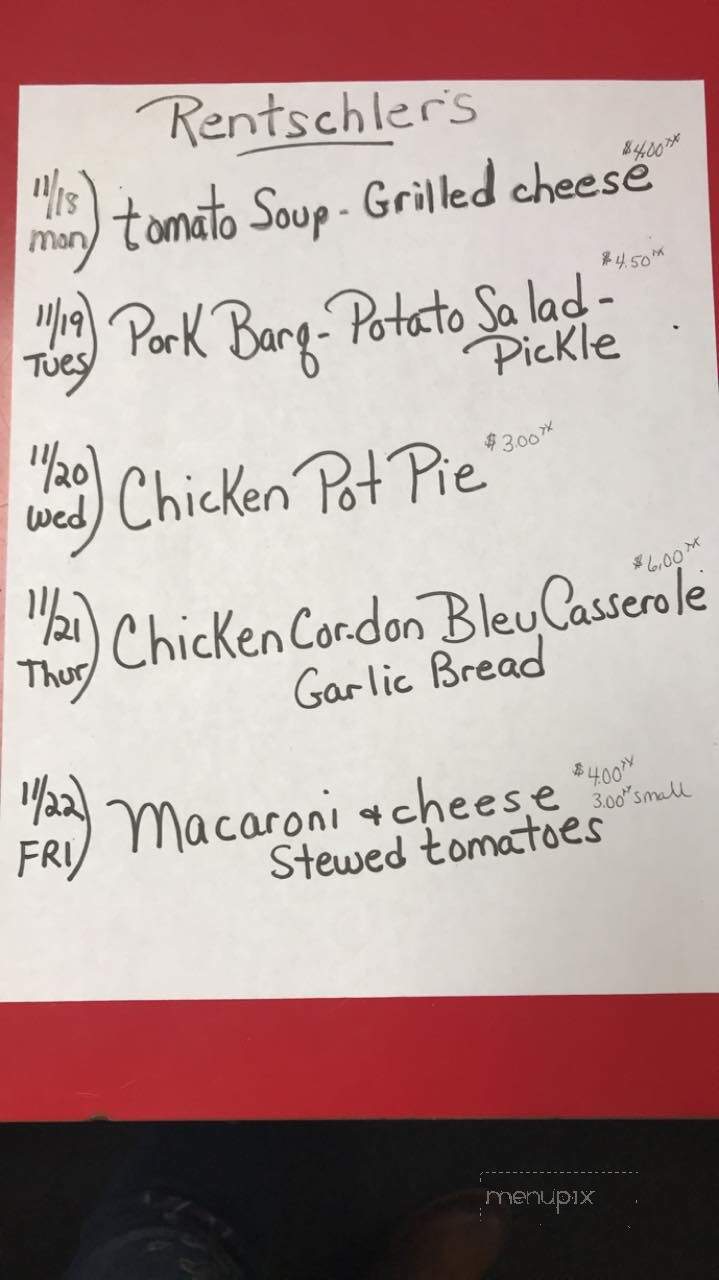 Rentschler's
11/18 Mon) tomato Soup - Grilled cheese $4.00 TX
11/19 Tues) Pork Barq - Potato Salad - $4.50 TX
Pickle
11/20 Wed) Chicken Pot Pie $3.00 TX
11/21 Thur) Chicken Cordon Bleu Casserole $6.00 TX
Garlic Bread
11/22 FRI) Macaroni & cheese $4.00 TX
3.00 TX small
Stewed tomatoes
menupix